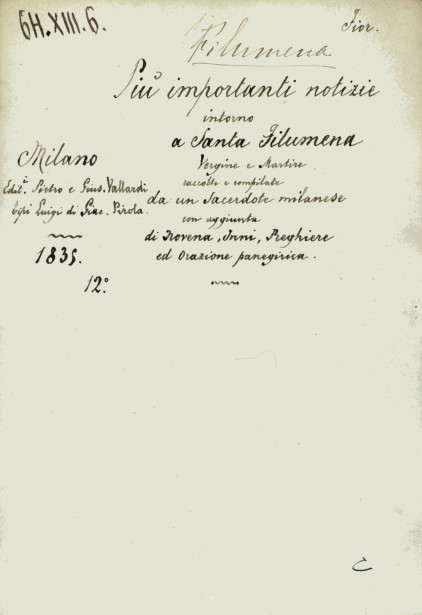 6H.XIII.6.
Fior.
Filumena
Più importanti notizie
intorno
a Santa Filumena
Vergine e Martire
raccolte e compilate
da un Sacerdote milanese
con aggiunta
di Novena, Inni, Preghiere
ed Orazione panegirica.
Milano
Edit.i Pietro e Gius. Vallardi
tipi Luigi di Giac. Pirola.
1835.
12°